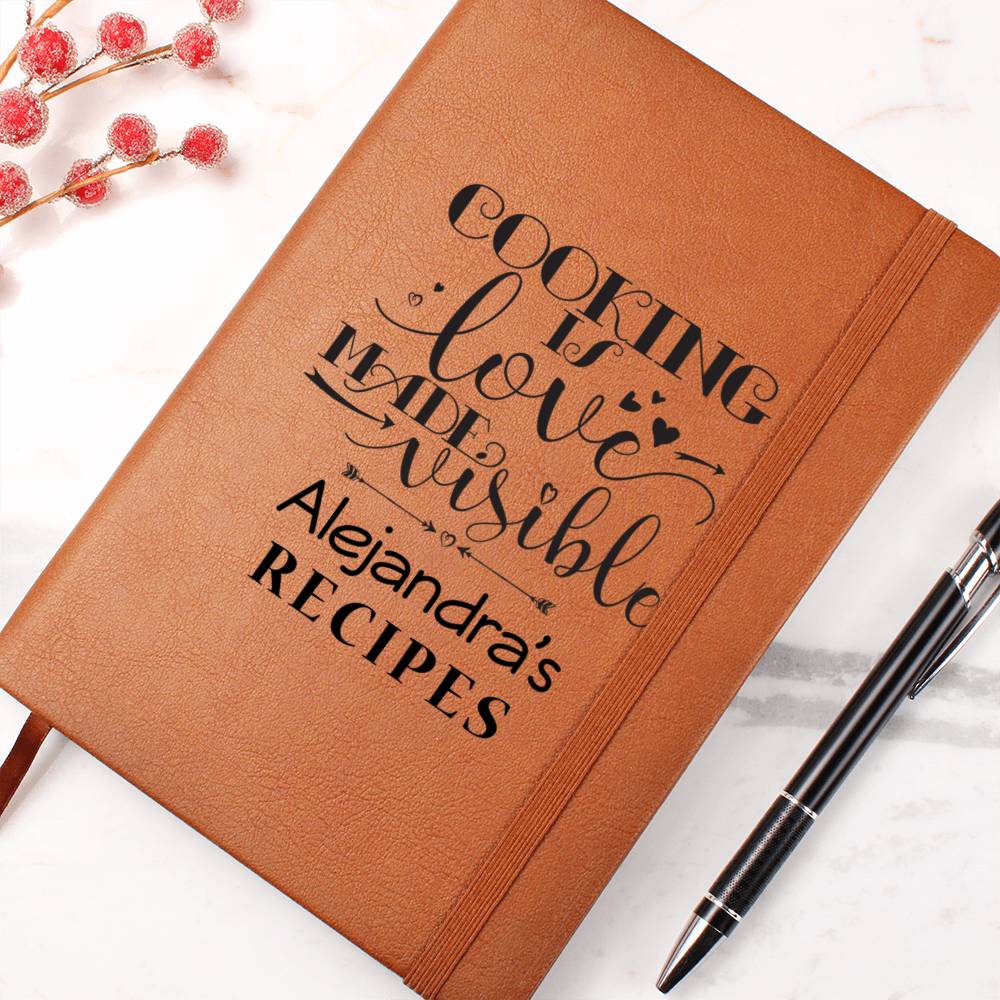 COOKING
IS
love
MADE
visible
Alejandra's
RECIPES